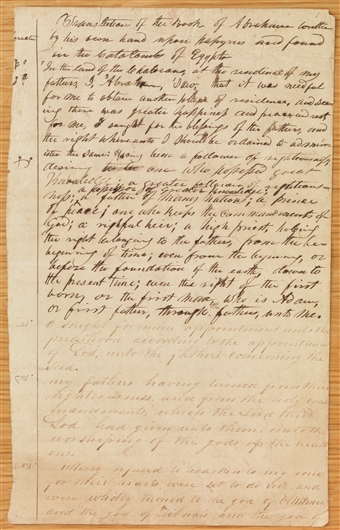 Translation of the Book of Abraham written
by his own hand upon papyrus and found
in the CataCombs of Egypt
In the land of the Chaldeans, at the residence of my
fathers, I, Abraham, Saw, that it was needful
for me to obtain another place of residence, and see
ing there was greater happiness and peace and rest
for me, I sought for the blessings of the fathers, and
the right whereunto I should be ordained to admin
ister the same: Having been a follower of righteousness
desiring one who possessed great
Knowledge; a greater follower of righteous
ness; a possessor of greater Knowledge;
a father of many nations; a prince
of peace; one who keeps the commandments of
God; a rightful heir; a high priest, holding
the right belonging to the fathers, from the be
gining of time; even from the begining, or
before the foundation of the earth, down to
the present time; even the right of the first
born, or the first man, who is Adam,
or first father, through fathers, unto me.
I sought for mine appointment unto the
priesthood according to the appointment
of God, unto the fathers concerning the
seed.
my fathers having turned from their
righteousness, and from the holy com
mandments, which the Lord their
God had given unto them, unto the
worshiping of the gods of the heath
ens.
utterly refused to hearken to my voice
for their hearts were set to do evil and
were wholly turned to the god of
and the god of Libnah and the god